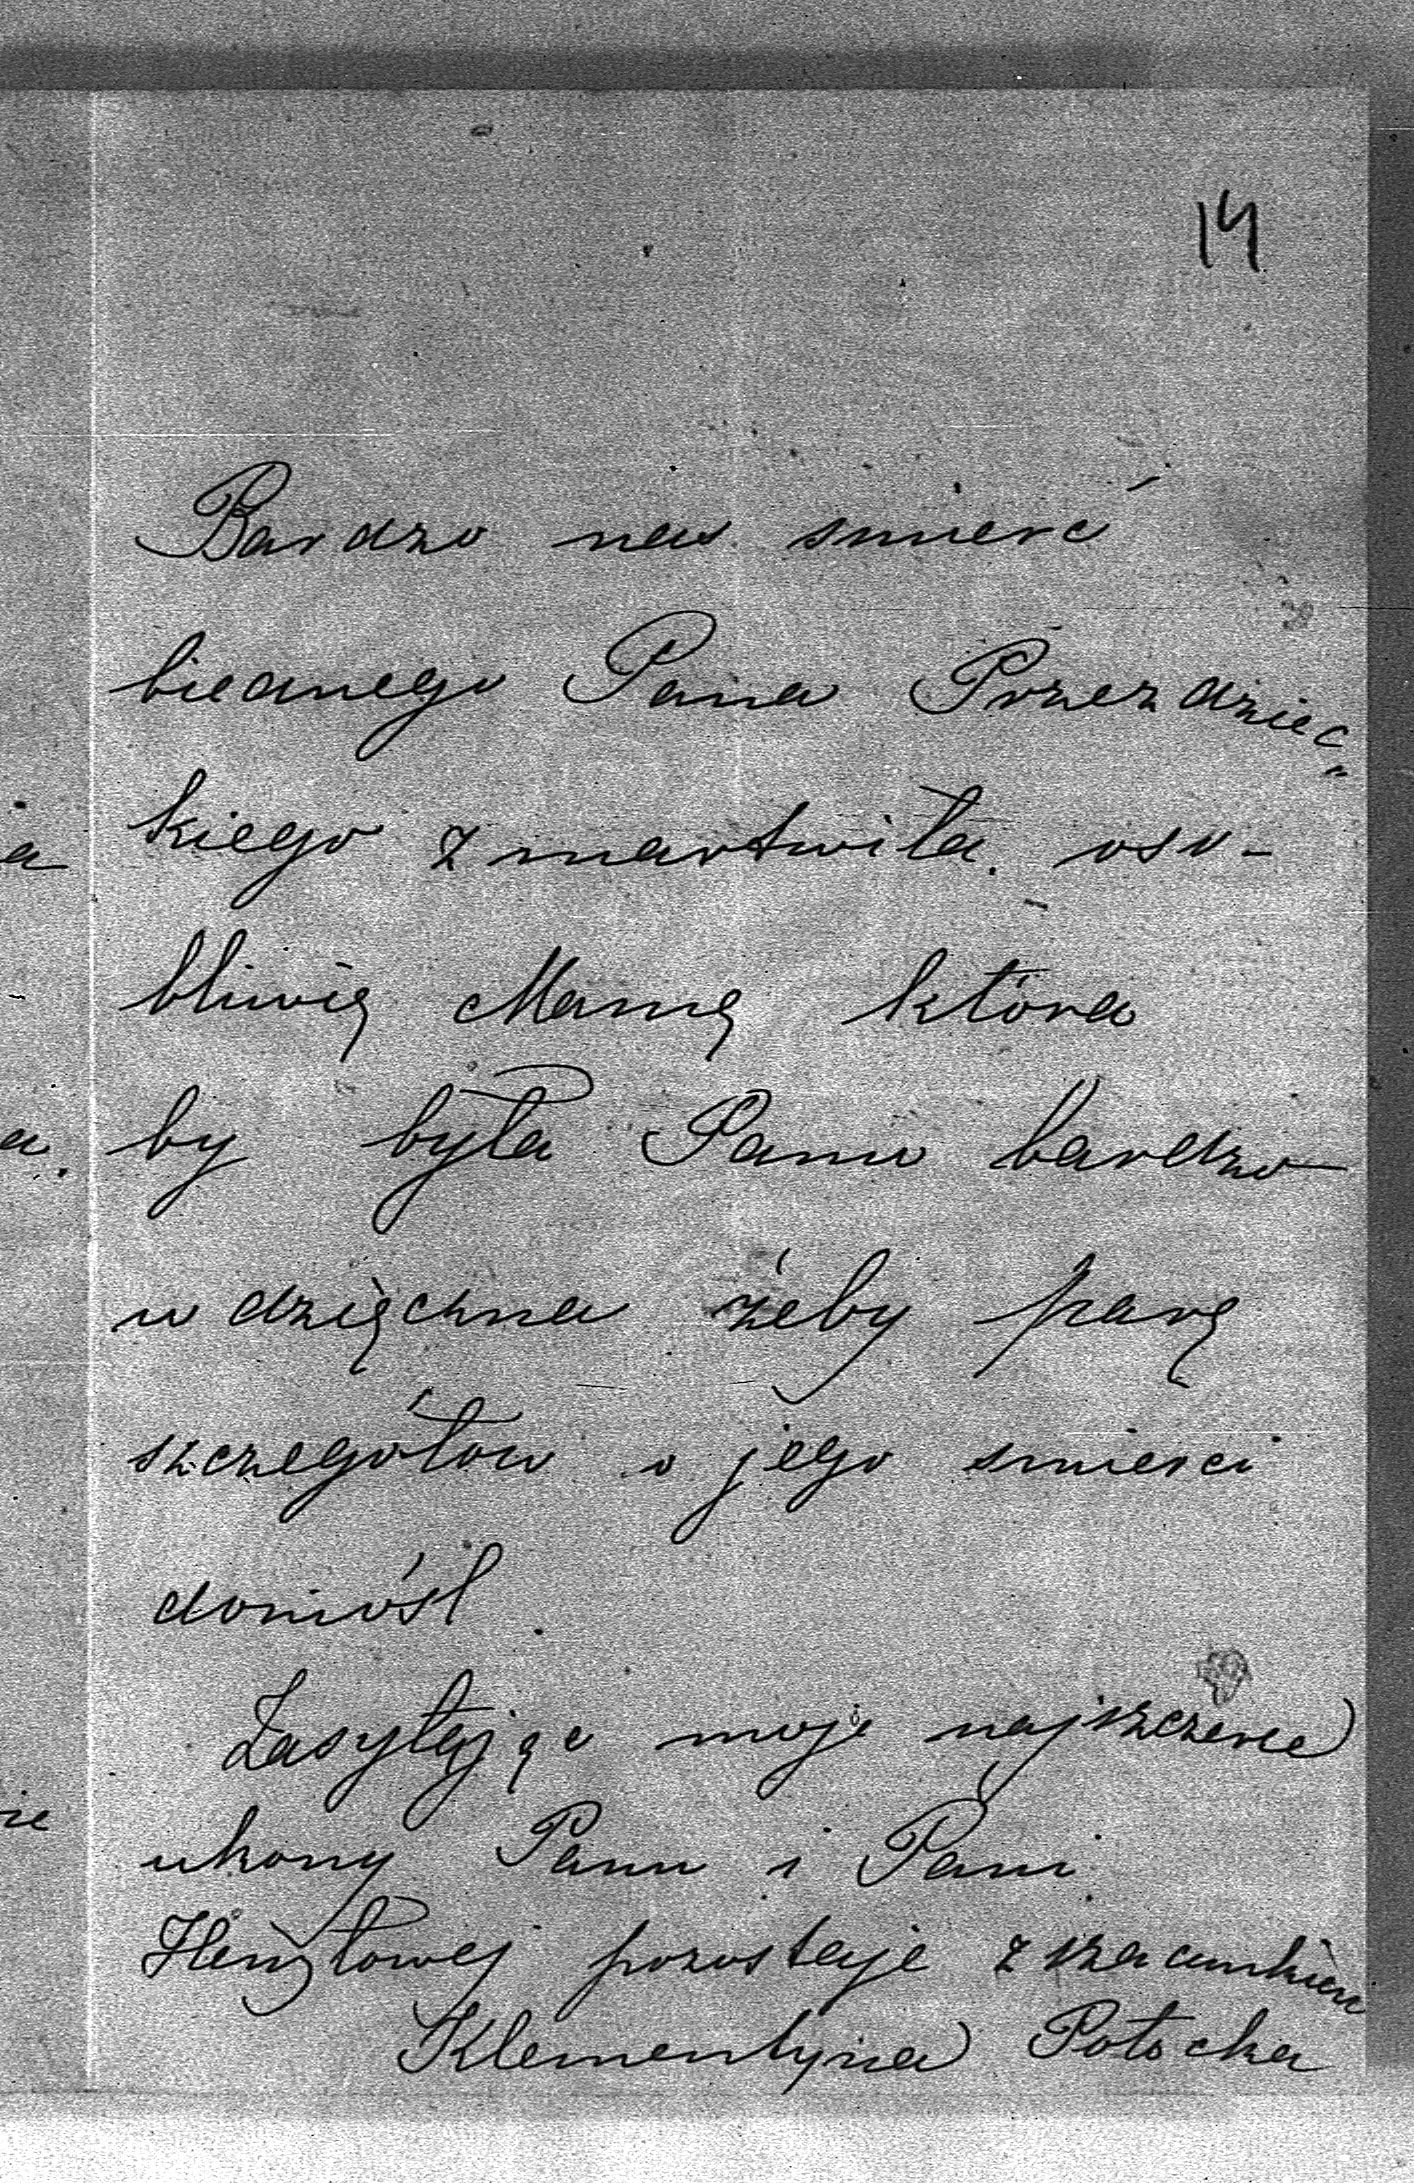 14
Bardzo nas smierć
biednego Pana Przezdziec„
kiego zmartwiła. oso-
bliwię Mamę ktora
by była Panu bardzo
wdzięczna żeby parę
szczegółow o jego smierci
doniósł.
Zasyłając moje najszczersze
ukony Panu i Pani
pozostaje z szacunkiem
Klementyna Potocka